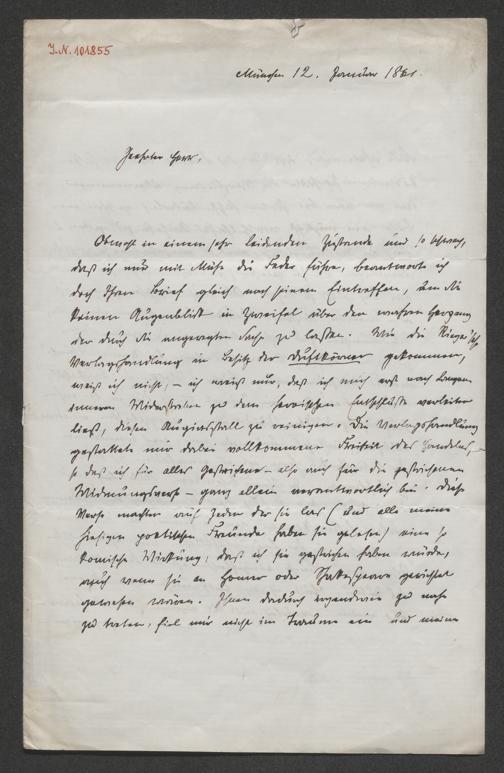 I.N. 101855
München 12. Januar 1861.
Geehrter Herr,
Obwohl in einem sehr leidenden Zustande und so schwach,
daß ich nur mit Mühe die Feder führe, beantworte ich
doch Ihren Brief gleich nach seinem Eintreffen, um Sie
keinen Augenblick in Zweifel über den wahren Hergang
der durch Sie angeregten Sache zu lassen. Wie die Rieger'sche
Verlagshandlung in Besitz der Duftkörner gekommen,
weiß ich nicht, – ich weiß nur, daß ich mich erst nach langem
inneren Widerstreben zu dem heroischen Entschlusse verleiten
ließ, diesen Augiasstall zu reinigen. Die Verlagshandlung
gestattete mir dabei vollkommene Freiheit des Handelns, –
so daß ich für alles Gestrichene – also auch für die gestrichenen
Widmungsverse – ganz allein verantwortlich bin. Diese
Verse machten auf Jeden der sie las (und alle meine
hiesigen poetischen Freunde haben sie gelesen) eine so
komische Wirkung, daß ich sie gestrichen haben würde,
auch wenn sie an Homer oder Shakespeare gerichtet
gewesen wären. Ihnen dadurch irgendwie zu nahe
zu treten, fiel mir nicht im Traume ein und meine